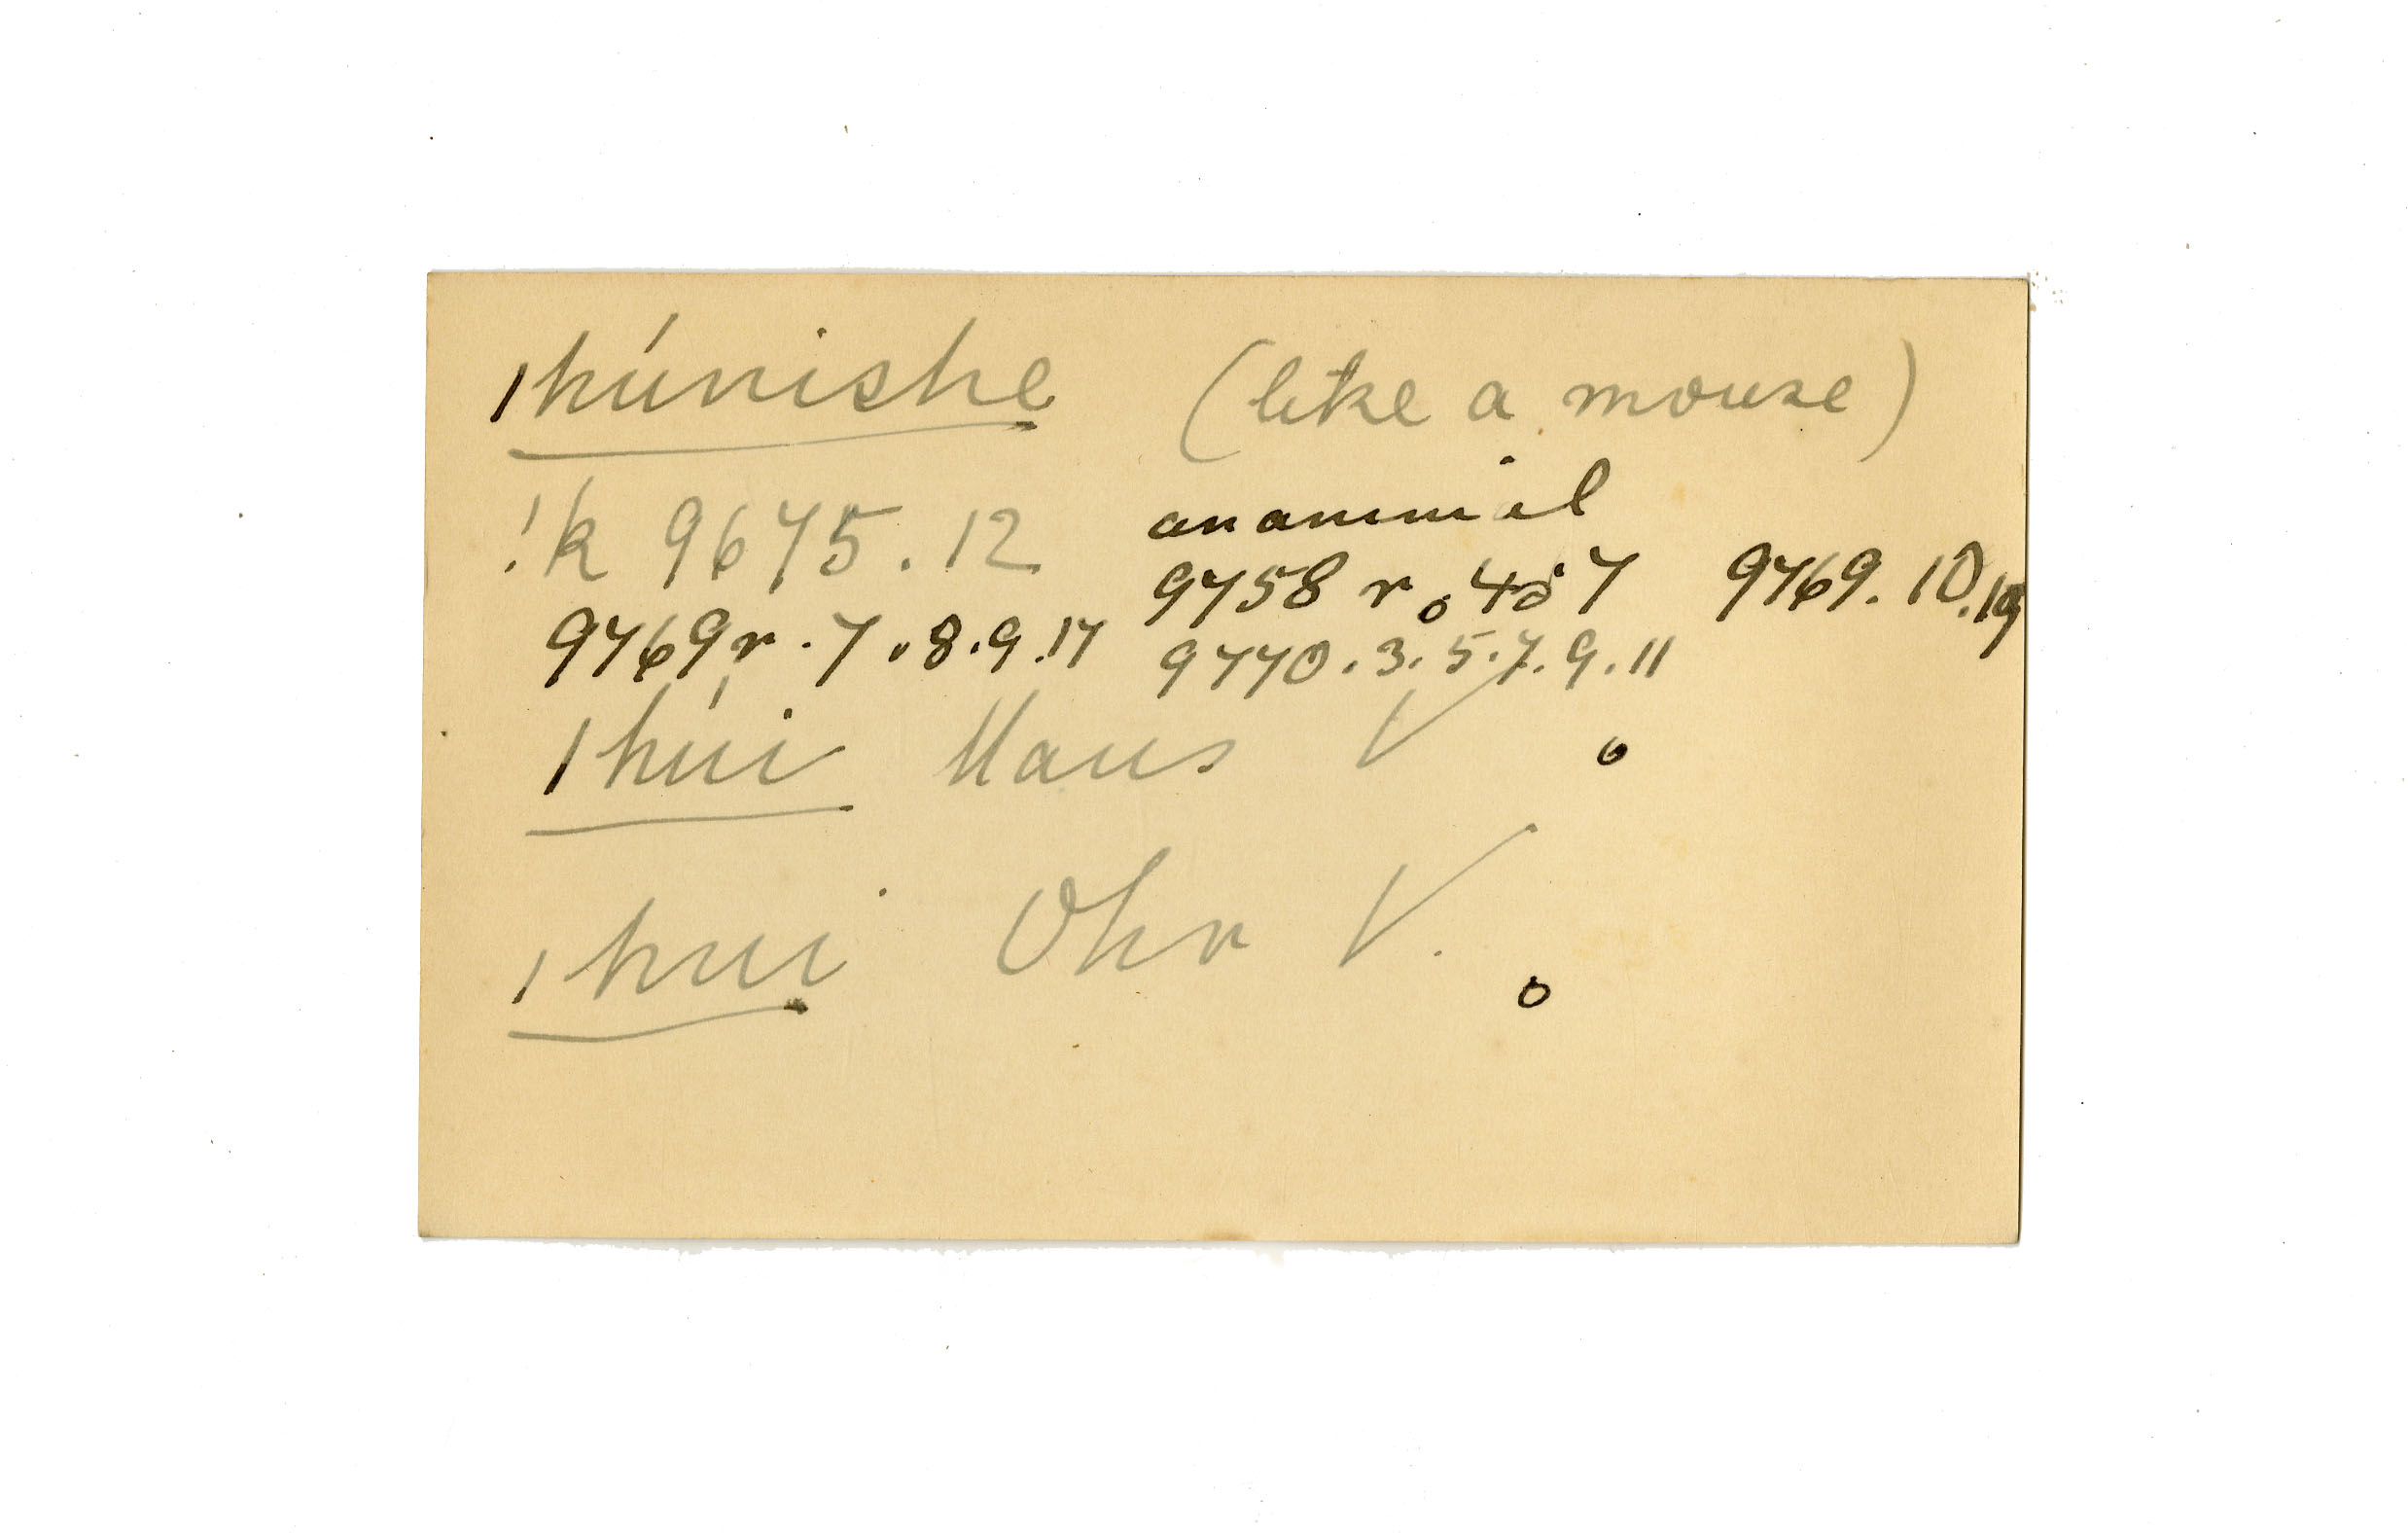 |húnishe (like a mouse)
!k 9675.12 an animal
9758 r. 4. 7 9769. 10.19
9769r. 7. 8. 9. 17 9770. 3. 5. 7. 9. 11
|húi Maus V
|hui Ohr V.